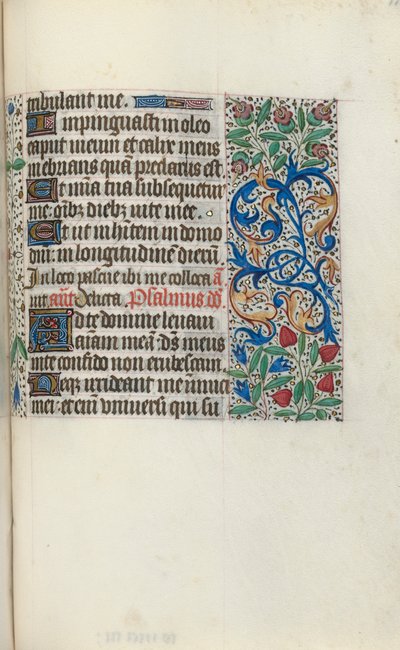 tribulant me.
Impinguasti in oleo
caput meum et calix meus
inebrians quã preclarus est
Et mia tua subsequetur
me: oĩbꝫ diebꝫ uite mee.
Et ut inhitem in domo
dñi: in longitudinẽ dierũ.
In loco pascue ibi me colloca
uit añt Delicta. Psalmus dd̃
Ad te domine leuaui
aĩam meã: ds̃ meus
in te confido non erubescam
Neqꝫ irrideant me inimici
mei: et eñi vniuersi qui su